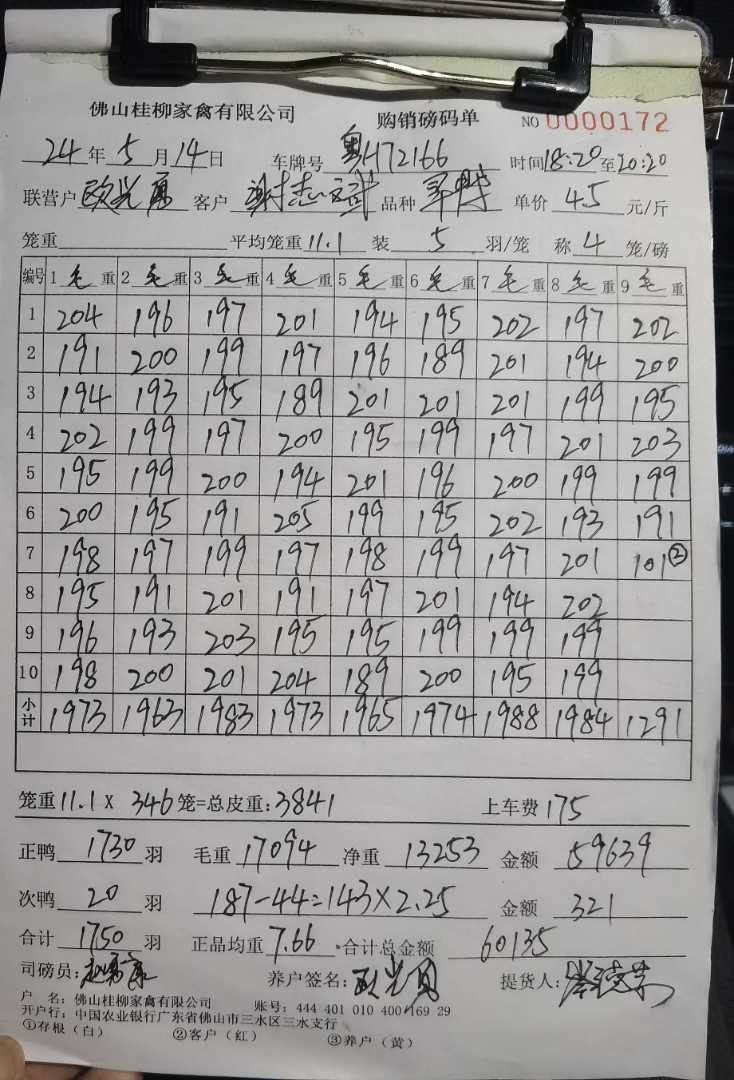 佛山桂柳家禽有限公司 购销磅码单 NO 0000172
24年5月14日 车牌号 粤H72166 时间18:20至20:20
联营户 欧光勇 客户 谢志斌 品种 单价 4.5 元/斤
笼重 平均笼重11.1 装 5 羽/笼 称 4 笼/磅
编号 1 毛 重 2 毛 重 3 毛 重 4 毛 重 5 毛 重 6 毛 重 7 毛 重 8 毛 重 9 毛 重
1 204 196 197 201 194 195 202 197 202
2 191 200 199 197 196 189 201 194 200
3 194 193 195 189 201 201 201 199 195
4 202 199 197 200 195 199 197 201 203
5 195 199 200 194 201 196 200 199 199
6 200 195 191 205 199 195 202 193 191
7 198 197 199 197 198 199 197 201 101②
8 195 191 201 191 197 201 194 202
9 196 193 203 195 195 199 199 199
10 198 200 201 204 189 200 195 199
小计 1973 1963 1983 1973 1965 1974 1988 1984 1291
笼重11.1 X 346笼=总皮重:3841 上车费 175
正鸭 1730 羽 毛重 17094 净重 13253 金额 59639
次鸭 20 羽 187-44=143×2.25 金额 321
合计 1750 羽 正品均重7.66 合计总金额 60135
司磅员: 养户签名: 提货人:
户 名: 佛山桂柳家禽有限公司 账号: 444 401 010 400 169 29
开户行: 中国农业银行广东省佛山市三水区三水支行
①存根(白) ②客户(红) ③养户(黄)